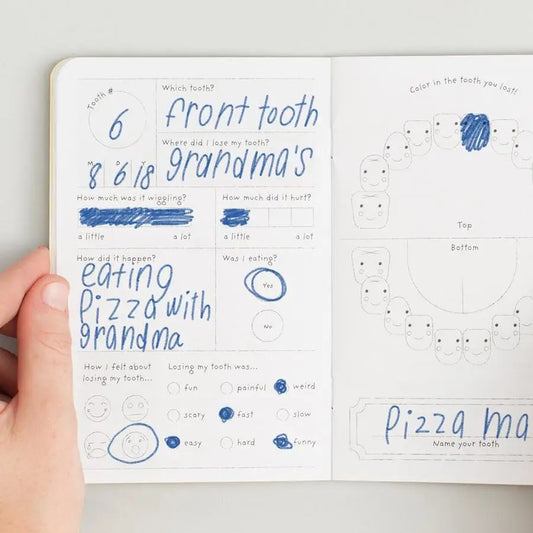 Tooth #
6
Which tooth?
front tooth
Where did I lose my tooth?
grandma's
M D Y
8 6 18
How much was it wiggling?
a little a lot
How much did it hurt?
a little a lot
How did it happen?
eating
pizza with
grandma
Was I eating?
Yes
No
How I felt about
losing my tooth...
Losing my tooth was...
fun painful weird
scary fast slow
easy hard funny
Color in the tooth you lost!
Top
Bottom
pizza ma
Name your tooth